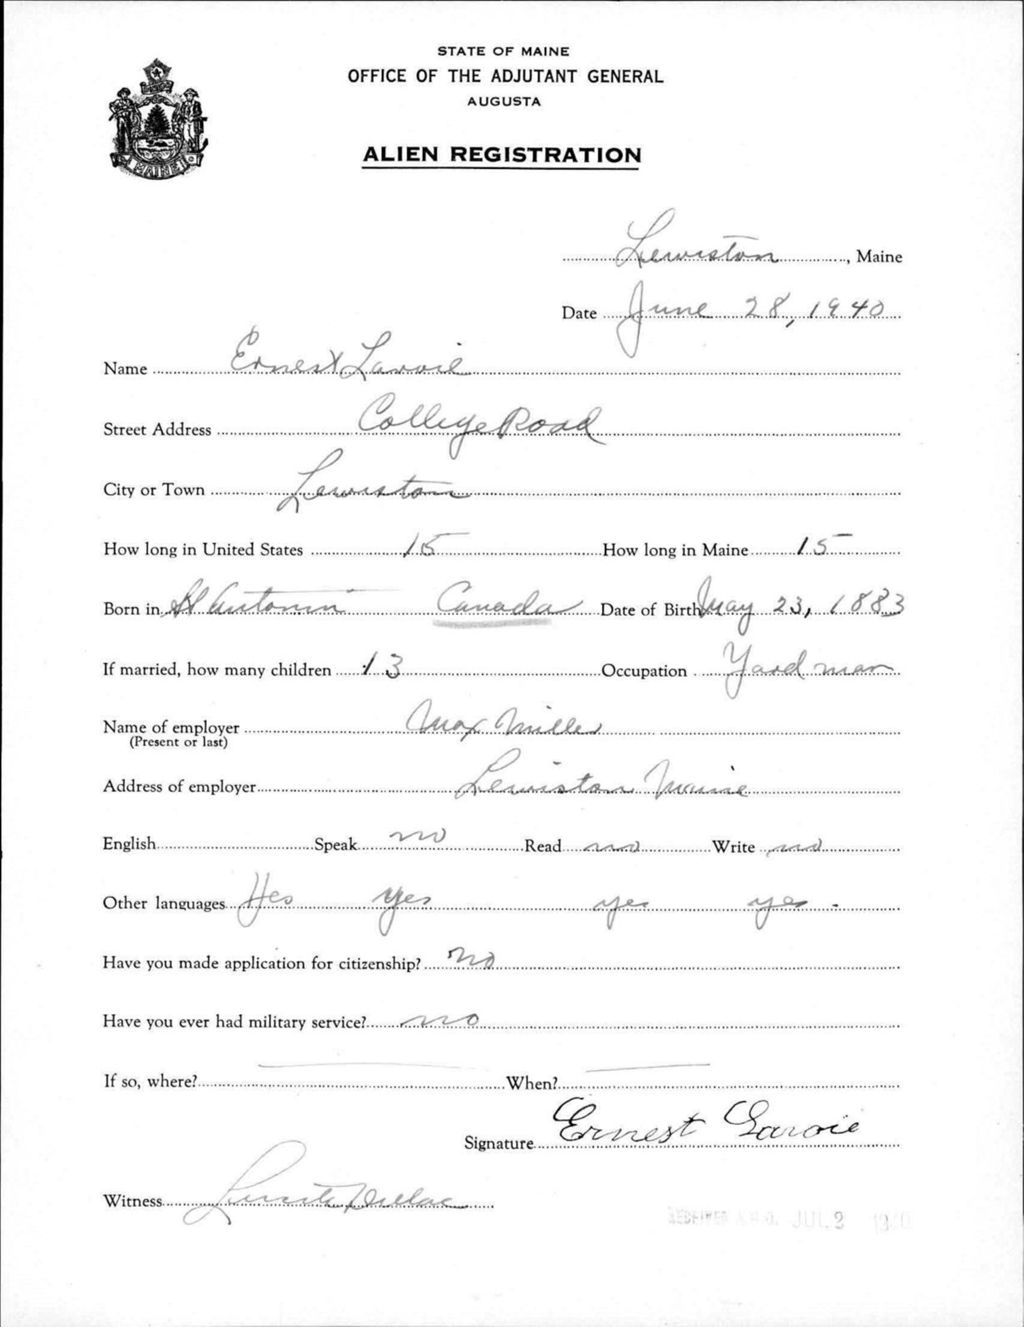 STATE OF MAINE
OFFICE OF THE ADJUTANT GENERAL
AUGUSTA
ALIEN REGISTRATION
MAINE
Lewiston, Maine
Date June 28, 1940
Name Ernest Lavoie
Street Address College Road
City or Town Lewiston
How long in United States 15 How long in Maine 15
Born in St Antonin Canada Date of Birth May 23, 1883
If married, how many children 13 Occupation Yard man
Name of employer Max Miller
(Present or last)
Address of employer Lewiston Maine
English Speak no Read no Write no
Other languages Yes yes yes yes
Have you made application for citizenship? no
Have you ever had military service? no
If so, where? When?
Signature Ernest Lavoie
Witness
RECEIVED A.G.O. JUL 2 1940